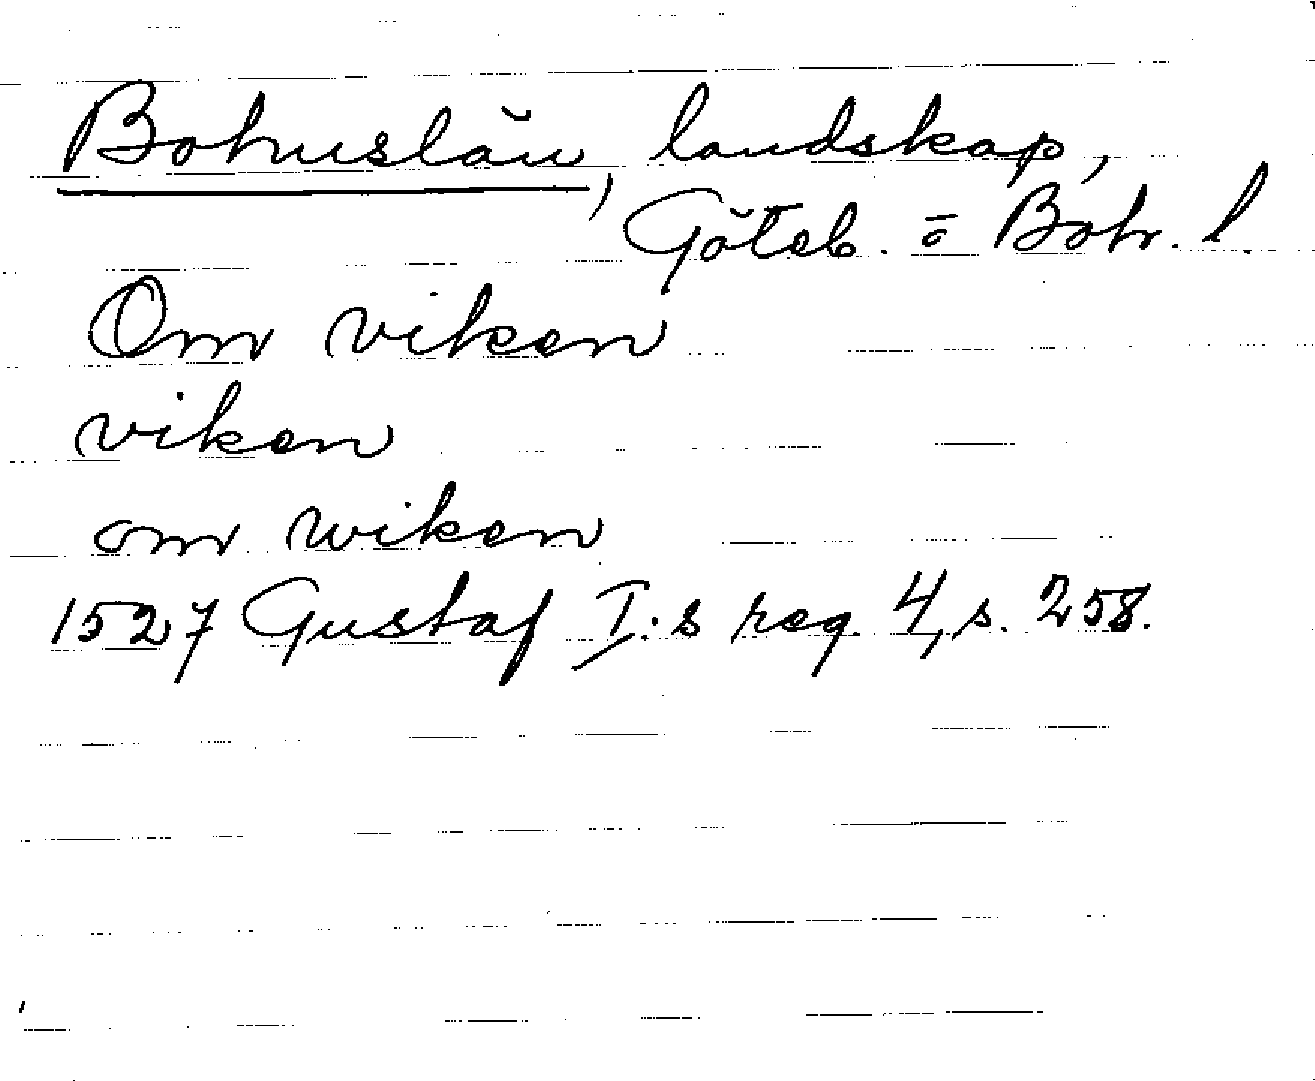 Bohuslän, landskap,
Göteb. o Boh. l.
Om viken
viken
om wiken
1527 Gustaf I:s reg. 4, s. 258.